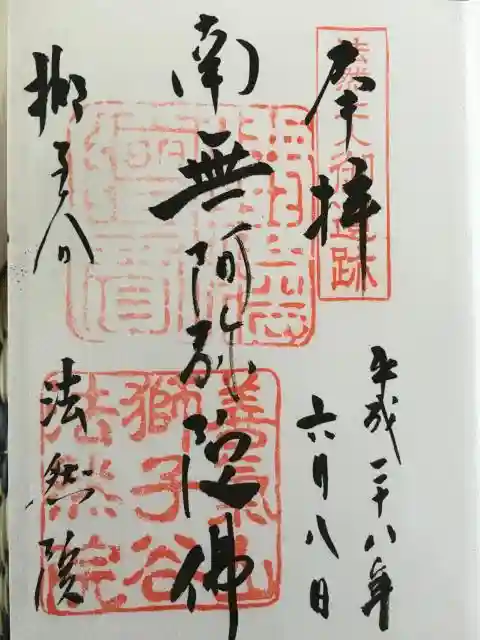 奉拝
法然上人御遺跡
平成二十八年
六月八日
南無阿弥陀佛
獅子谷
法然院
善氣山
獅子谷
法然院